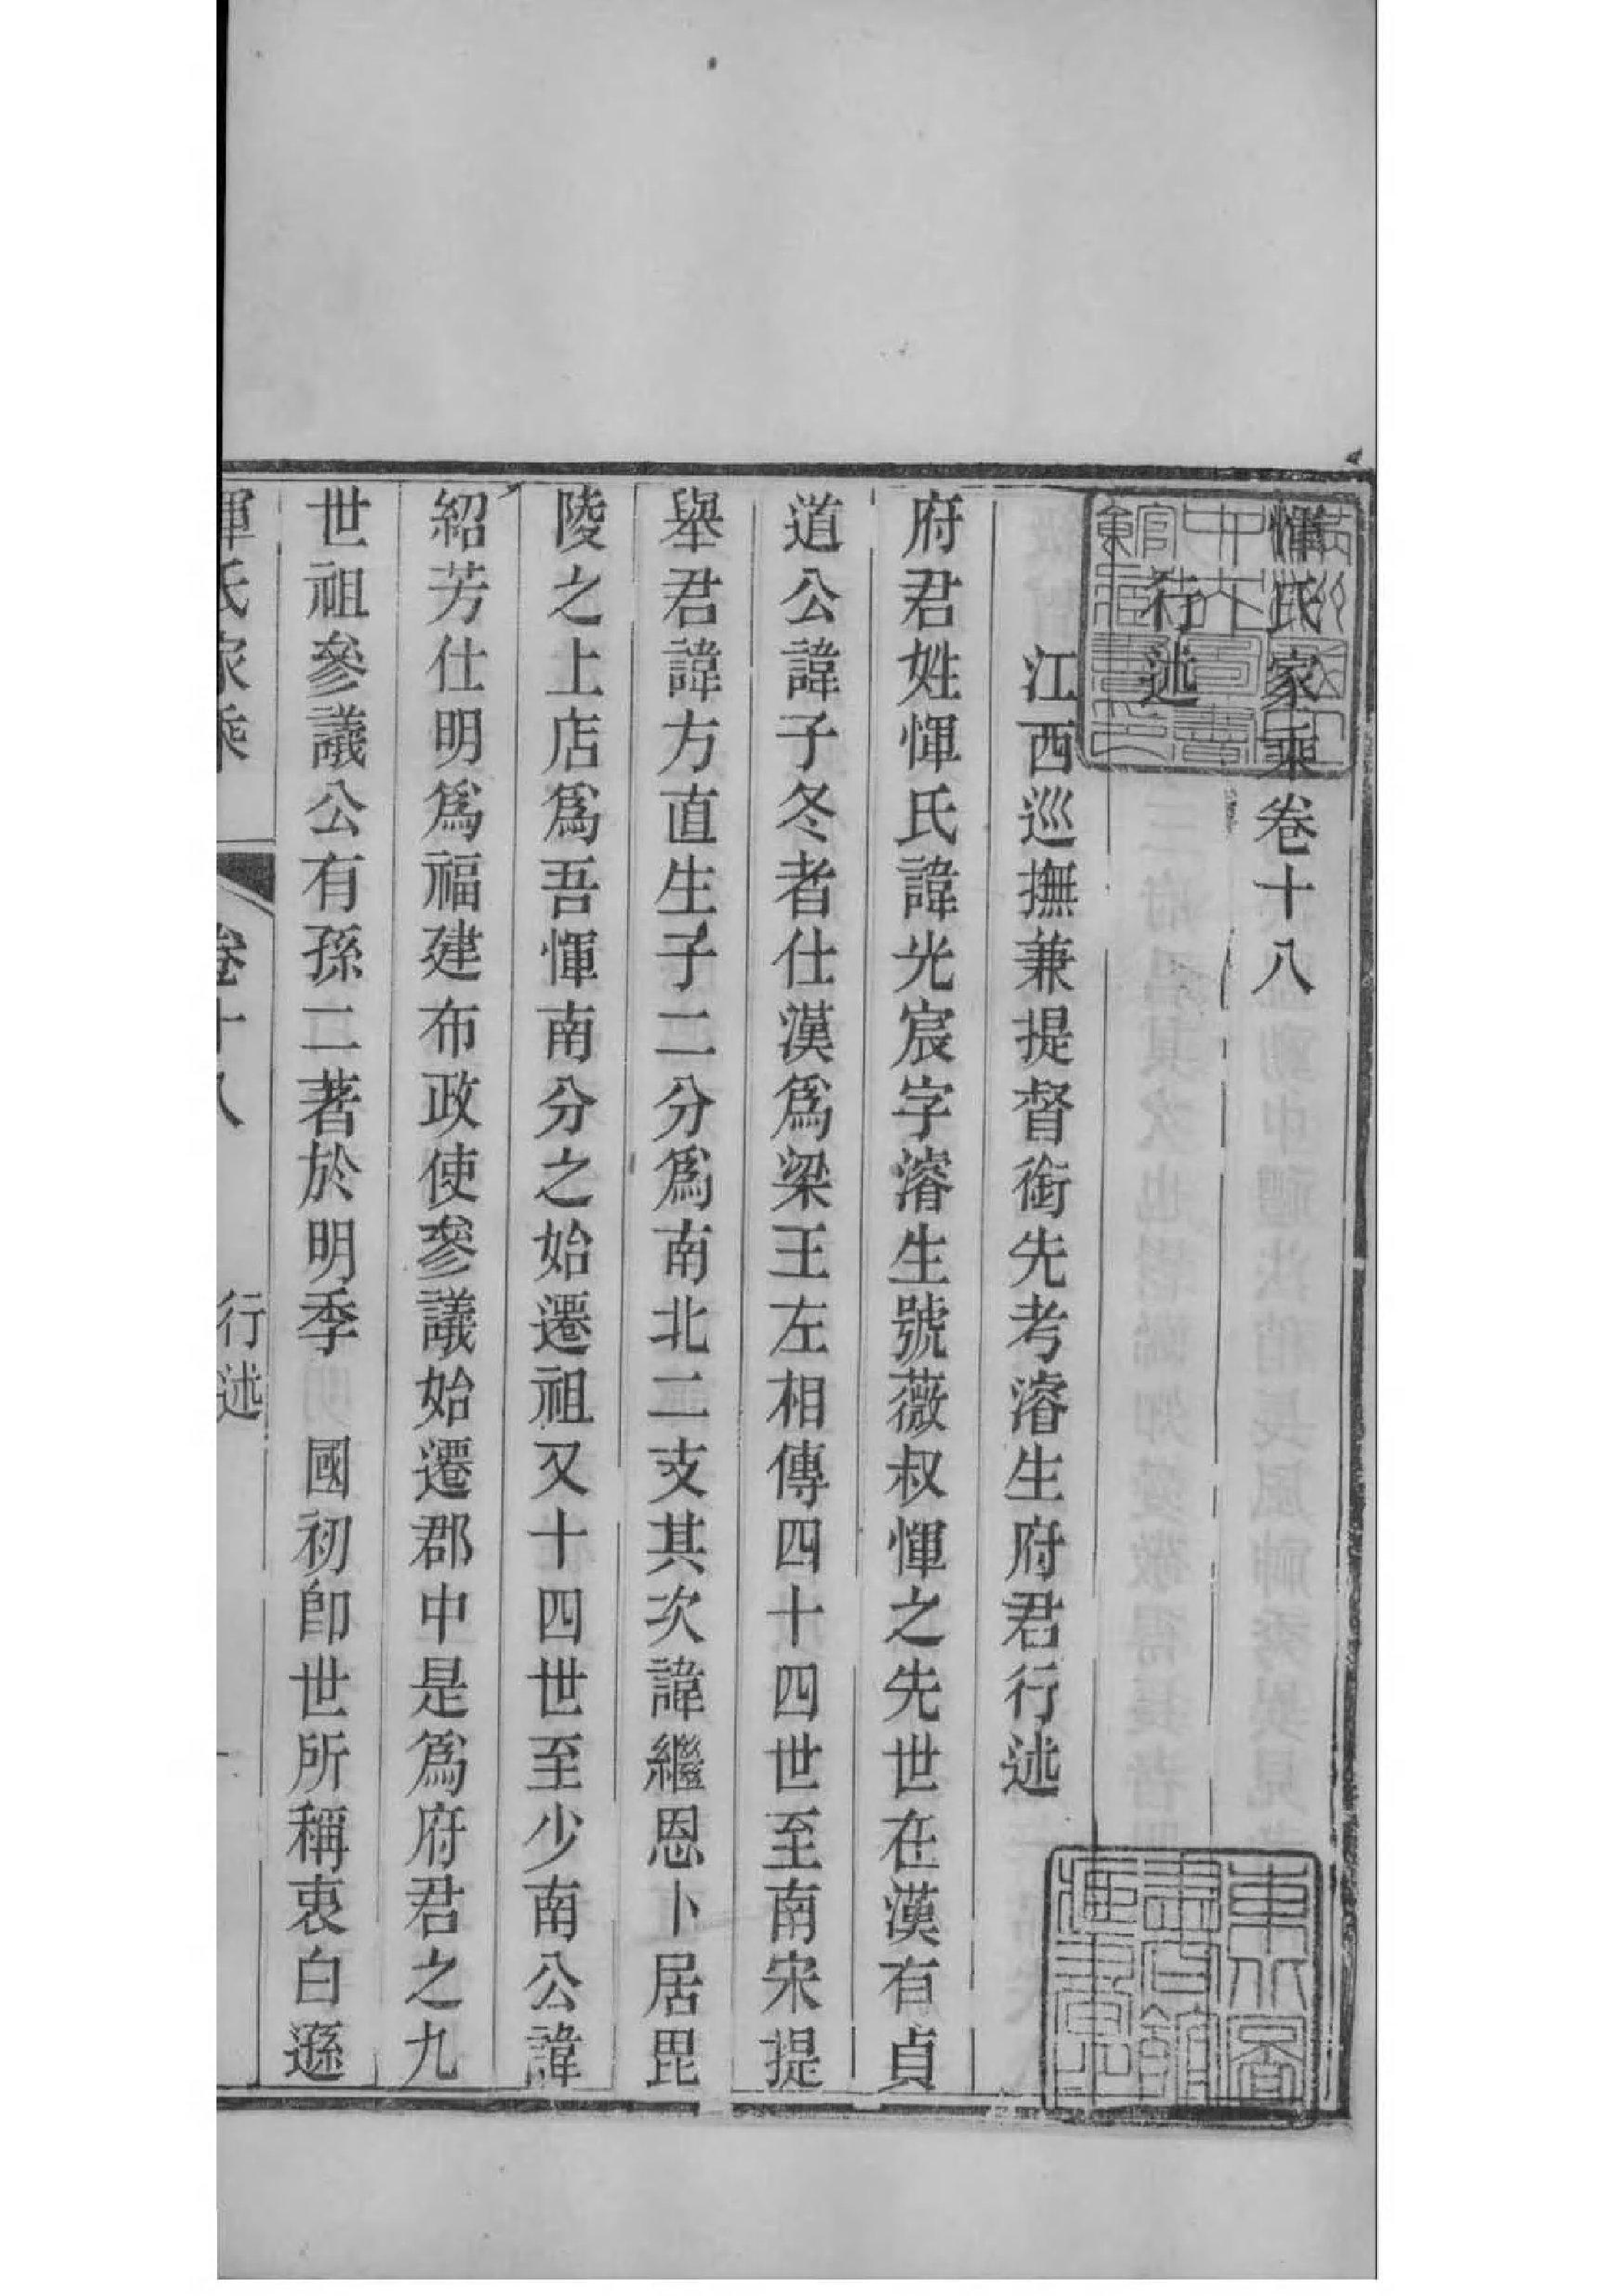 惲氏家乘卷十八
行述
江西巡撫兼提督銜先考濬生府君行述
府君姓惲氏諱光宸字濬生號薇叔惲之先世在漢有貞
道公諱子冬者仕漢爲梁王左相傳四十四世至南宋提
舉君諱方直生子二分爲南北二支其次諱繼恩卜居毘
陵之上店爲吾惲南分之始遷祖又十四世至少南公諱
紹芳仕明爲福建布政使參議始遷郡中是爲府君之九
世祖參議公有孫二著於明季 國初卽世所稱衷白遜
惲氏家乘 卷十八 行述 一